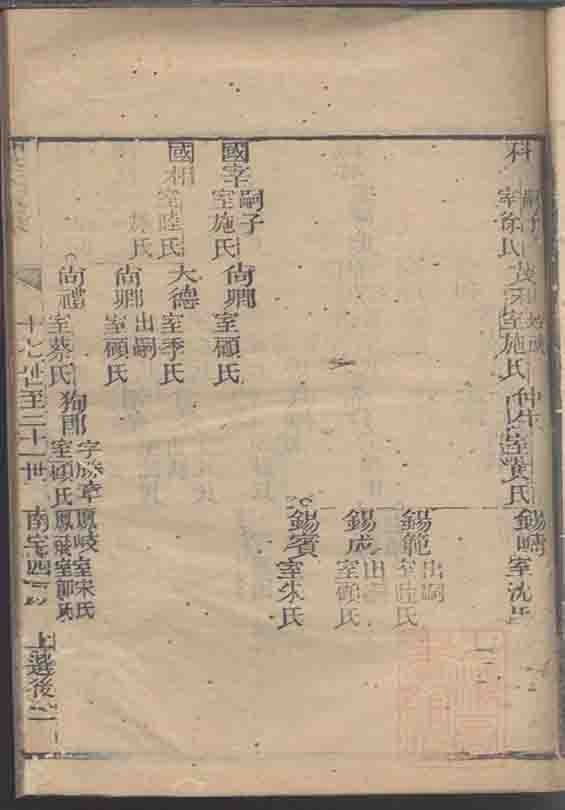 科 嗣子 室徐氏 室施氏 室黃氏 錫疇 室沈氏
錫範 出嗣 室陸氏
錫成 出嗣 室顧氏
錫賓 室朱氏
國宰 嗣子 室施氏 尚卿 室顧氏
國相 室陸氏 大德 室季氏
氏 尚卿 出嗣 室顧氏
尚禮 室蔡氏 狗郎 字 章 室顧氏 鳳岐 室宋氏 鳳飛 室郭氏
十七世至二十一世 南 四 上 後